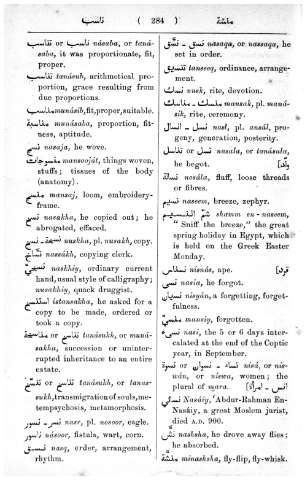 ناسب ( 284 ) منشة
ناسب or تناسب násaba, or taná-
saba, it was proportionate, fit,
proper.
تناسب tanásub, arithmetical pro-
portion, grace resulting from
due proportions.
مناسب munásib, fit, proper, suitable.
مناسبة munásaba, proportion, fit-
ness, aptitude.
نسج nasaja, he wove.
منسوجات mansooját, things woven,
stuffs; tissues of the body
(anatomy).
منسج mansaj, loom, embroidery-
frame.
نسخ nasakha, he copied out; he
abrogated, effaced.
نسخة - نسخ nuskha, pl. nusakh, copy.
نساخ nassákh, copying clerk.
نسخي naskhiy, ordinary current
hand, usual style of calligraphy;
nusakhiy, quack druggist.
استنسخ istansakha, he asked for a
copy to be made, ordered or
took a copy.
تناسخ or مناسخة tanásukh, or muná-
sakha, succession or uninter-
rupted inheritance to an entire
estate.
تناسخ or تنسخ tanásukh, or tanas-
sukh, transmigration of souls, me-
tempsychosis, metamorphosis.
نسر - نسور nasr, pl. nosoor, eagle.
ناسور násoor, fistula, wart, corn.
نسق nasq, order, arrangement,
rhythm.
نسق - نسّق nasaqa, or nassaqa, he
set in order.
تنسيق tanseeq, ordinance, arrange-
ment.
نسك nusk, rite, devotion.
منسك - مناسك mansak, pl. maná-
sik, rite, ceremony.
نسل - انسال nasl, pl. ansál, pro-
geny, generation, posterity.
نسل or تناسل nasala, or tanásula,
he begot.
نسالة nosála, fluff, loose threads
or fibres.
نسيم naseem, breeze, zephyr.
شم النسيم shamm en-naseem,
"Sniff the breeze," the great
spring holiday in Egypt, which
is held on the Greek Easter
Monday.
نسناس nisnás, ape.
نسي nasia, he forgot.
نسيان nisyán, a forgetting, forget-
fulness.
منسي mansiy, forgotten.
نسيء nasi, the 5 or 6 days inter-
calated at the end of the Coptic
year, in September.
نسوة or نسوان - نساء nisá, or nis-
wán, or niswa, women; the
plural of mara.
نسائي Nasáiy, 'Abdur-Rahman En-
Nasáiy, a great Moslem jurist,
died A.D. 900.
نش nashsha, he drove away flies;
he absorbed.
منشة minashsha, fly-flip, fly-whisk.